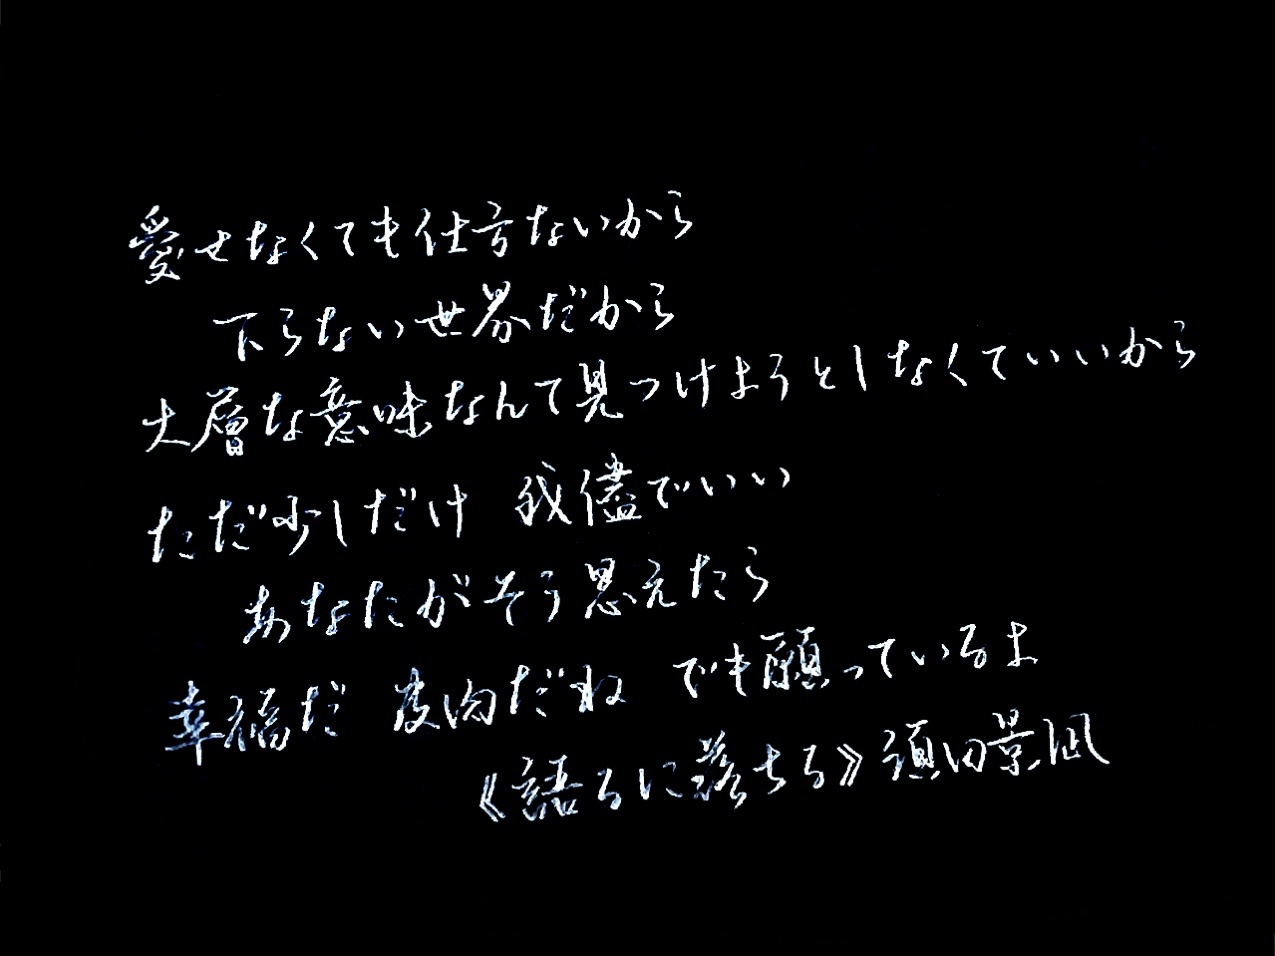 愛せなくても仕方ないから
下らない世界だから
大層な意味なんて見つけようとしなくていいから
ただ少しだけ 我儘でいい
あなたがそう思えたら
幸福だ 皮肉だね でも願っているよ
《語るに落ちる》須田景凪